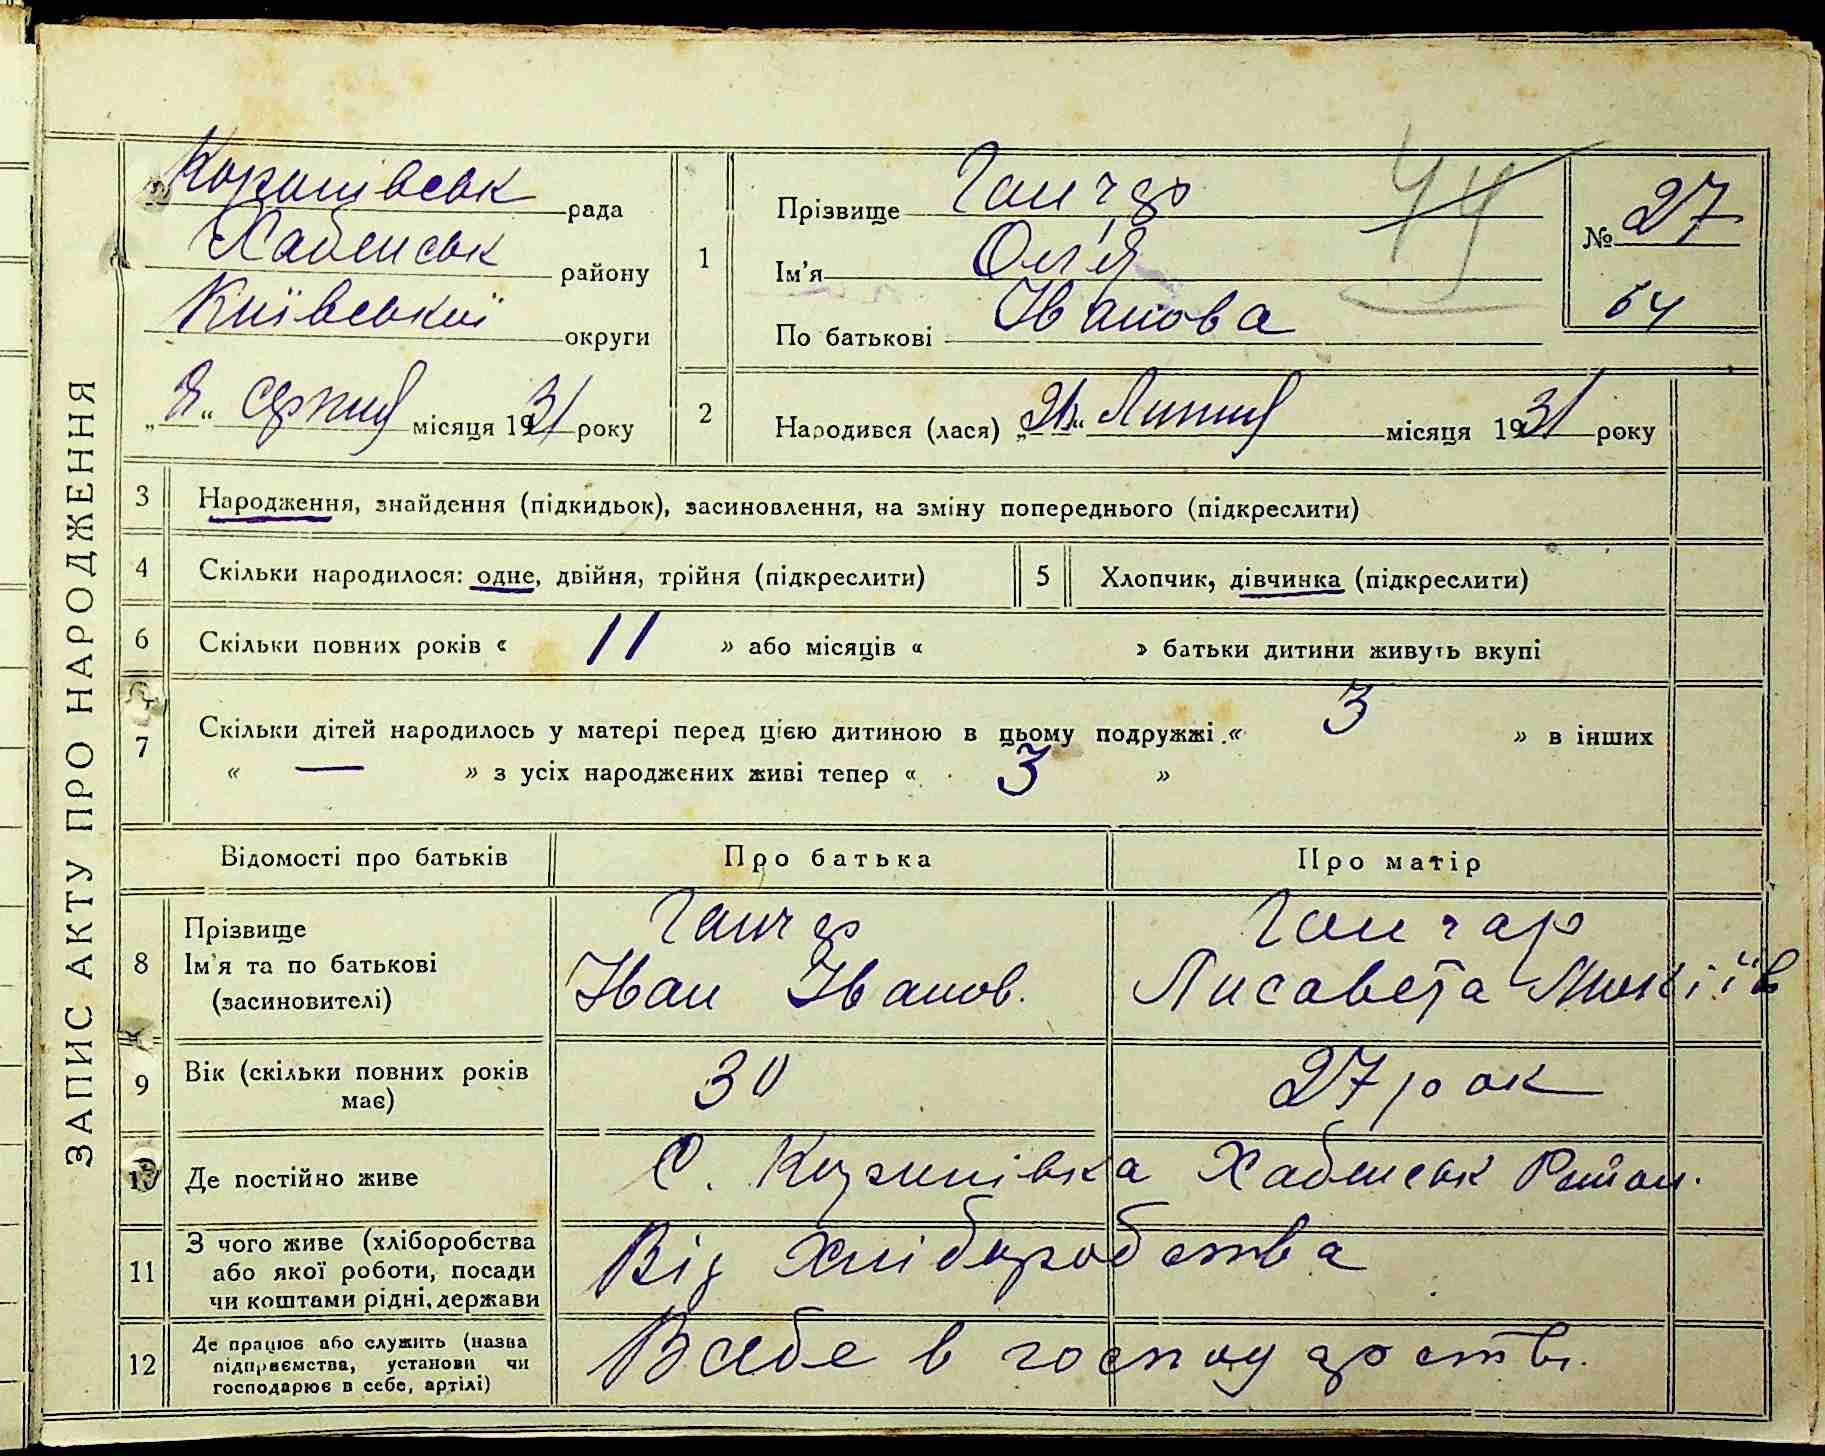 ЗАПИС АКТУ ПРО НАРОДЖЕННЯ
рада
Хабенськ району
Київської округи
"2" серпня місяця 1931 року
1
Прізвище Гончар
Ім'я Ол'я
По батькові Іванова
№ 27
64
44
2
Народився (лася) "21" Липня місяця 1931 року
3 Народження, знайдення (підкидьок), засиновлення, на зміну попереднього (підкреслити)
4 Скільки народилося: одне, двійня, трійня (підкреслити)
5 Хлопчик, дівчинка (підкреслити)
6 Скільки повних років « 11 » або місяців « » батьки дитини живуть вкупі
7 Скільки дітей народилось у матері перед цією дитиною в цьому подружжі « 3 » в інших
« — » з усіх народжених живі тепер « 3 »
Відомості про батьків Про батька Про матір
8 Прізвище
Ім'я та по батькові
(засиновителі)
Гончар
Іван Іванов.
Гончар
Лисавета
9 Вік (скільки повних років
має)
30
27 рок
10 Де постійно живе
С. Хабенськ Район.
11 З чого живе (хліборобства
або якої роботи, посади
чи коштами рідні, держави
Від Хліборобства
12 Де працює або служить (назва
підприємства, установи чи
господарює в себе, артілі)
В себе в господарстві.